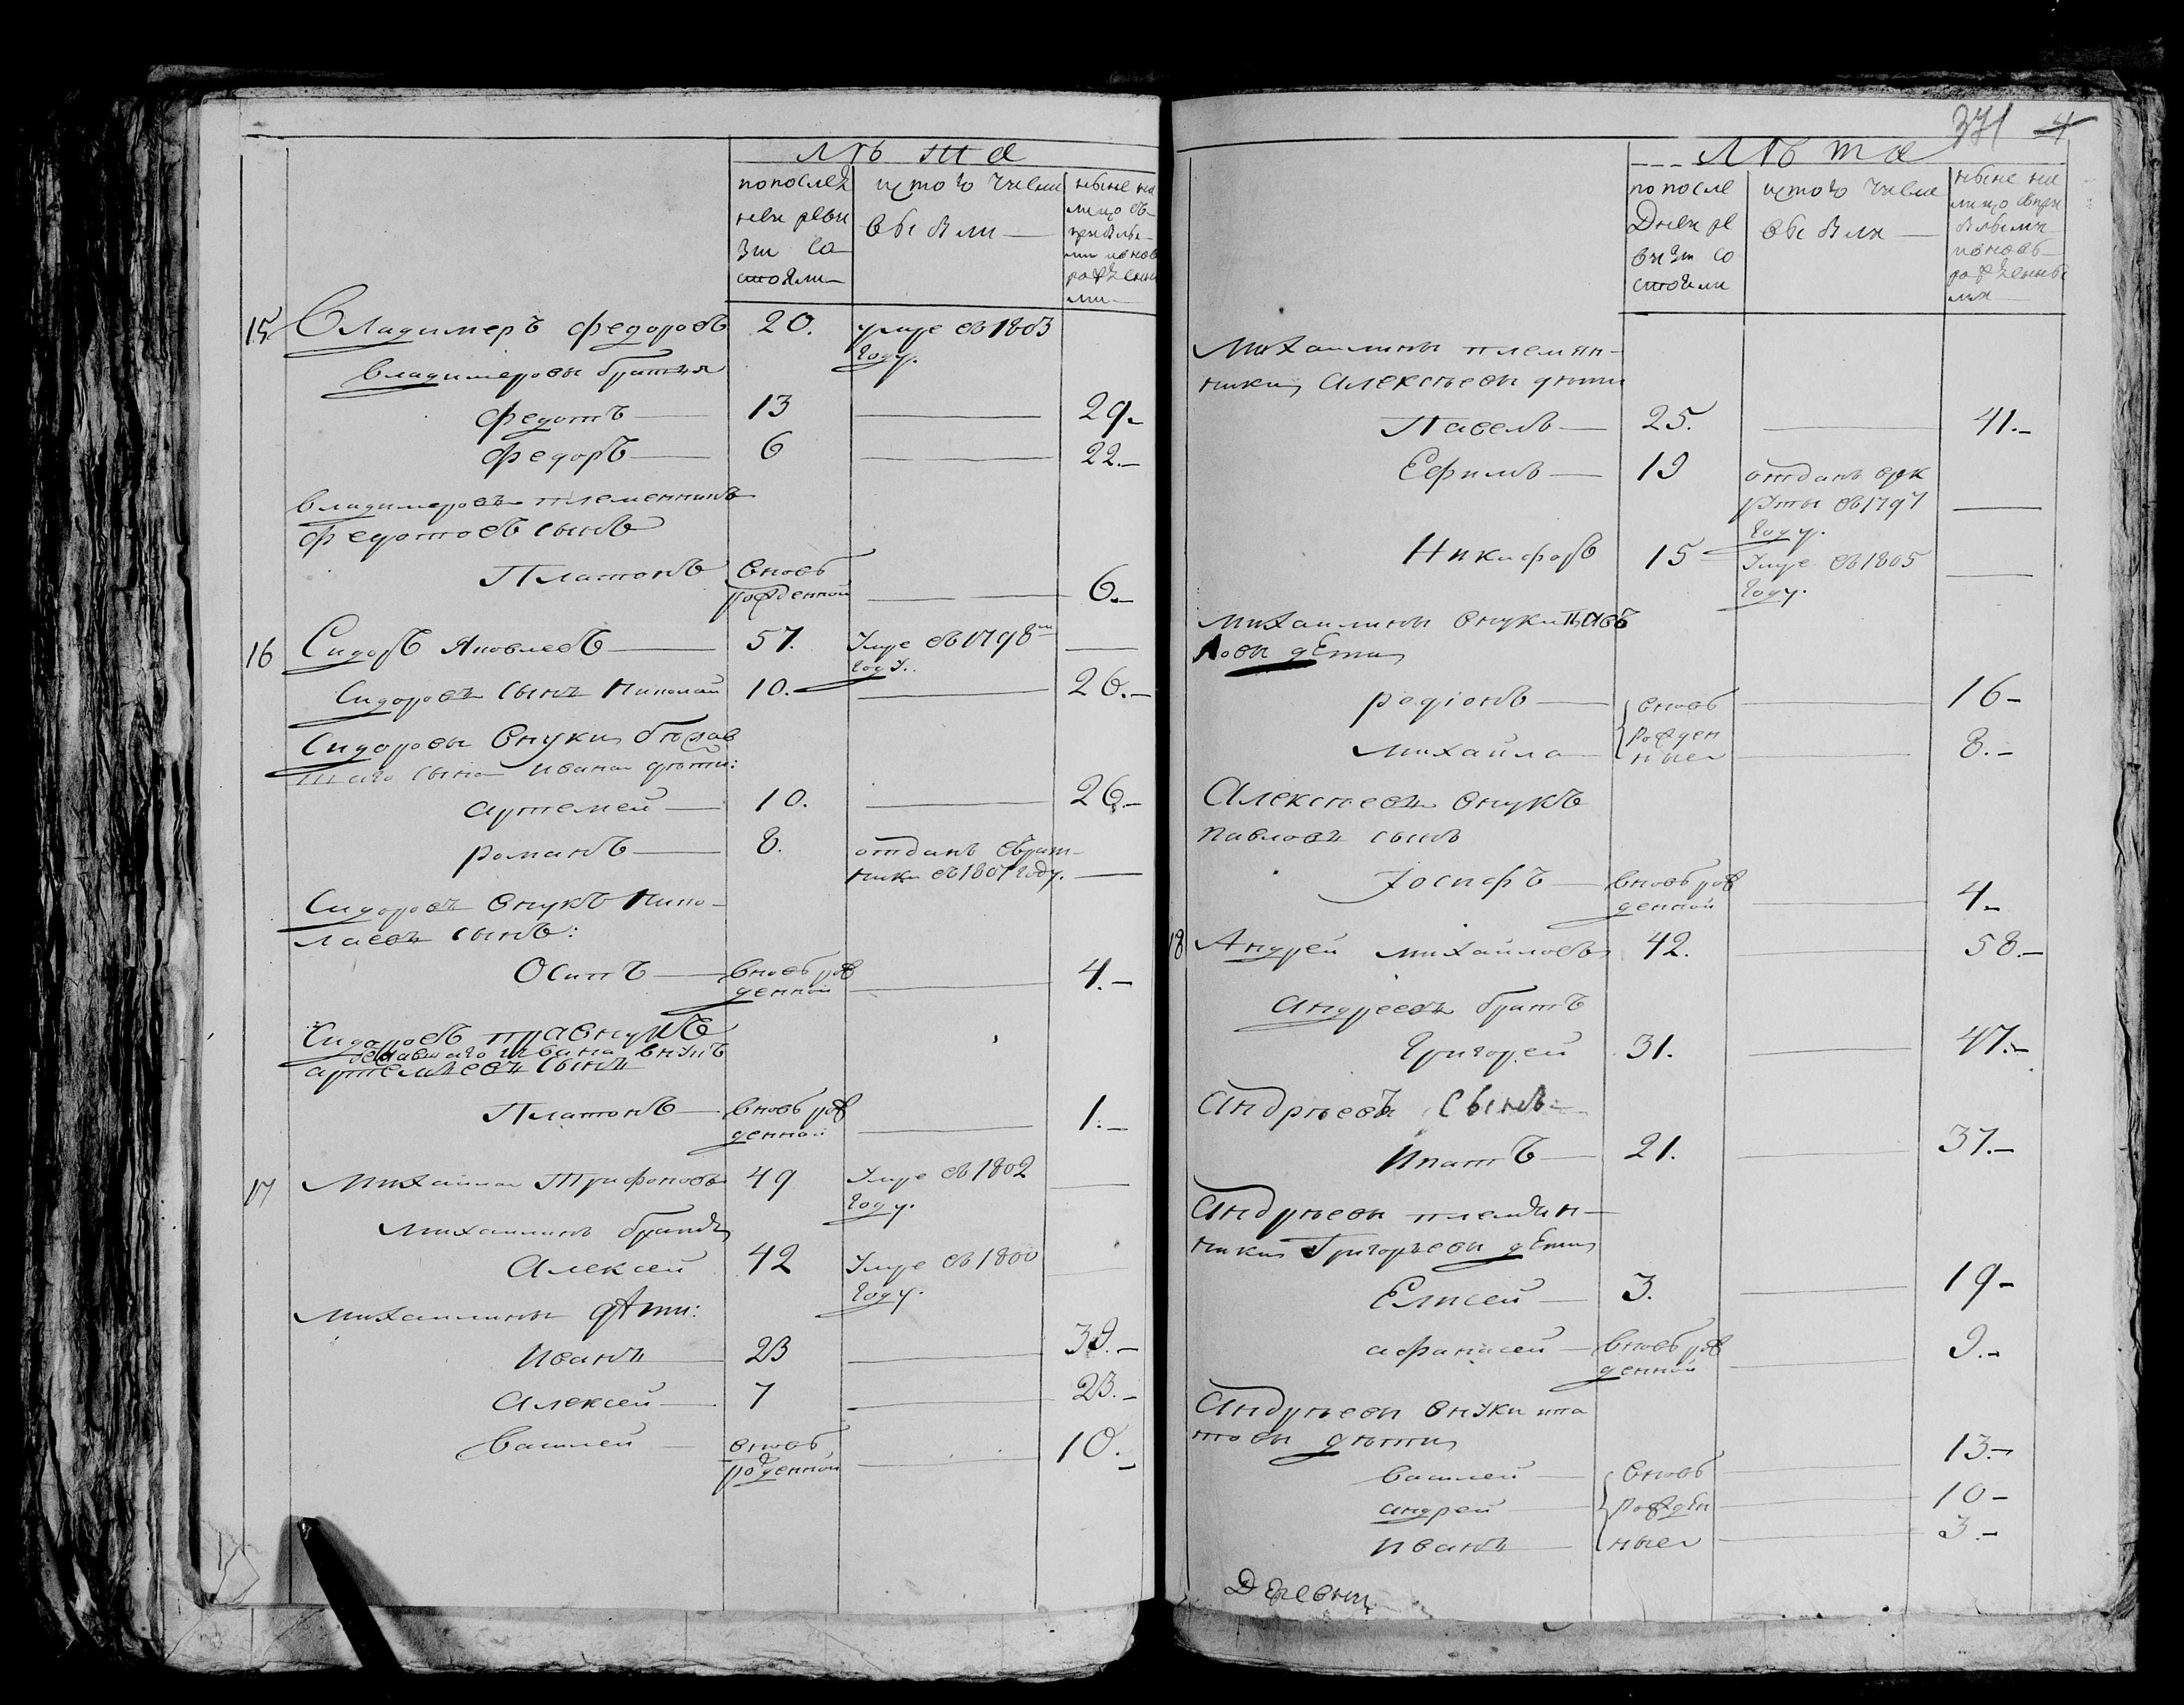 лѣта
по послед
ней реви
зіи со
стояли
ис того числа
выбыли
ныне на
лицо съ
прибылы
ми и новорожденны
ми
15 Владимеръ федоровъ 20. умре въ 1803
году.
владимеровы братья
федотъ 13 29.
федоръ 6 22.
владимеровъ племенникъ
федотовъ сынъ
Платонъ вновь
рожденной 6.
16 Сидоръ Яковлевъ 57. Умре въ 1798м
году.
Сидоровъ сынъ Николай 10. 26.
Сидоровы внуки бывшаго сына Ивана дѣти:
артемей 10. 26.
романъ 8. отданъ въ рат-
ники въ 1807 году.
Сидоровъ внукъ Нико-
лаевъ сынъ:
Осипъ вновь рож
денной 4.
Сидоровъ правнукъ
бывшаго ивана внукъ
артемьевъ сынъ
Платонъ вновь рож
денной 1.
17 Михаила Трифоновъ 49 Умре въ 1802
году.
Михаилинъ братъ
Алексей 42 Умре въ 1800
году.
Михаилины дѣти:
Иванъ 23 39.
Алексей 7 23.
василей вновь
рожденной 10.
371 4
лѣта
по после
дней ре
визіи со
стояли
ис того числа
выбыли
ныне на
лицо съ при
былыми
и новорожденны
ми
Михаилины племян-
ники, Алексѣевы дѣти
Павелъ 25. 41.
Ефимъ 19 отданъ в рек
руты въ 1797
году.
Никифоръ 15 Умре въ 1805
году.
Михаилины внуки Пав
ловы дети
родіонъ вновь 16
михайла рожден
ныя 8.
Алексѣевъ внукъ
павловъ сынъ
Іосифъ вновь рож
денной 4
18 Андрей михайловъ 42. 58.
Андреевъ братъ
Григорей 31. 47.
Андрѣевъ сынъ
Ипатъ 21. 37.
Андрѣевы племян-
ники Григорьевы дети
Елисей 3. 19
афанасей вновь рож
денной 9.
Андрѣевы внуки ипа
товы дѣти
василей вновь 13
андрей рожден 10
иванъ ныя 3.
Деревни